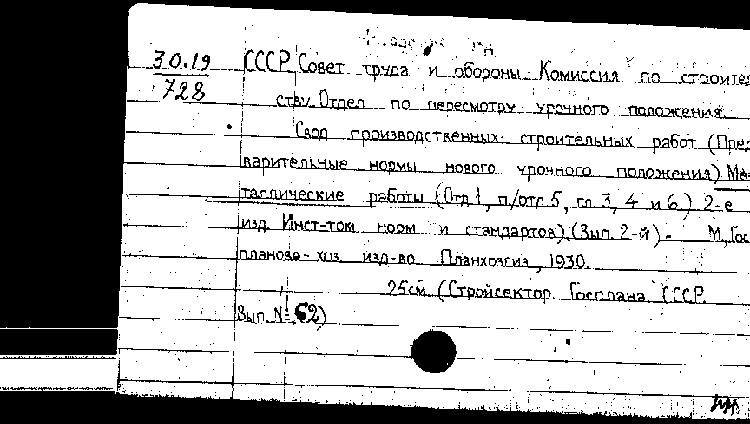 30.19
728
СССР. Совет труда и обороны. Комиссия по строитель
ству. Отдел по пересмотру урочного положения.
Свод производственных строительных работ (Пред
варительные нормы нового урочного положения) Ме-
таллические работы (Отд 1, п/отг. 5, гл 3, 4 и 6) 2-е
изд Инст-том норм и стандартов). (Вып. 2-й). М, Гос
планово-хоз изд-во Планхозгиз, 1930.
25см. (Стройсектор Госплана СССР.
Вып. № 62)